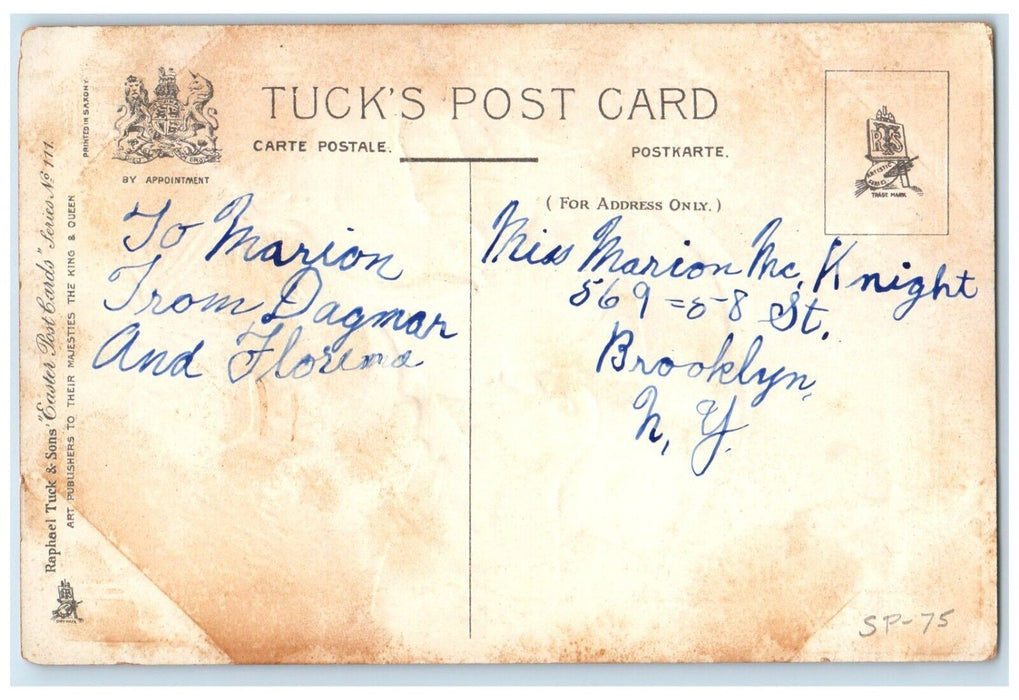 TUCK'S POST CARD
CARTE POSTALE.
POSTKARTE.
BY APPOINTMENT
PRINTED IN SAXONY
Raphael Tuck & Sons' "Easter Post Cards" Series Nº 111.
ART PUBLISHERS TO THEIR MAJESTIES THE KING & QUEEN
( FOR ADDRESS ONLY. )
ARTISTIC SERIES
TRADE MARK
To Marion
From Dagmar
And
Miss Marion Mc. Knight
569 = 58 St.
Brooklyn,
N, Y.
SP-75